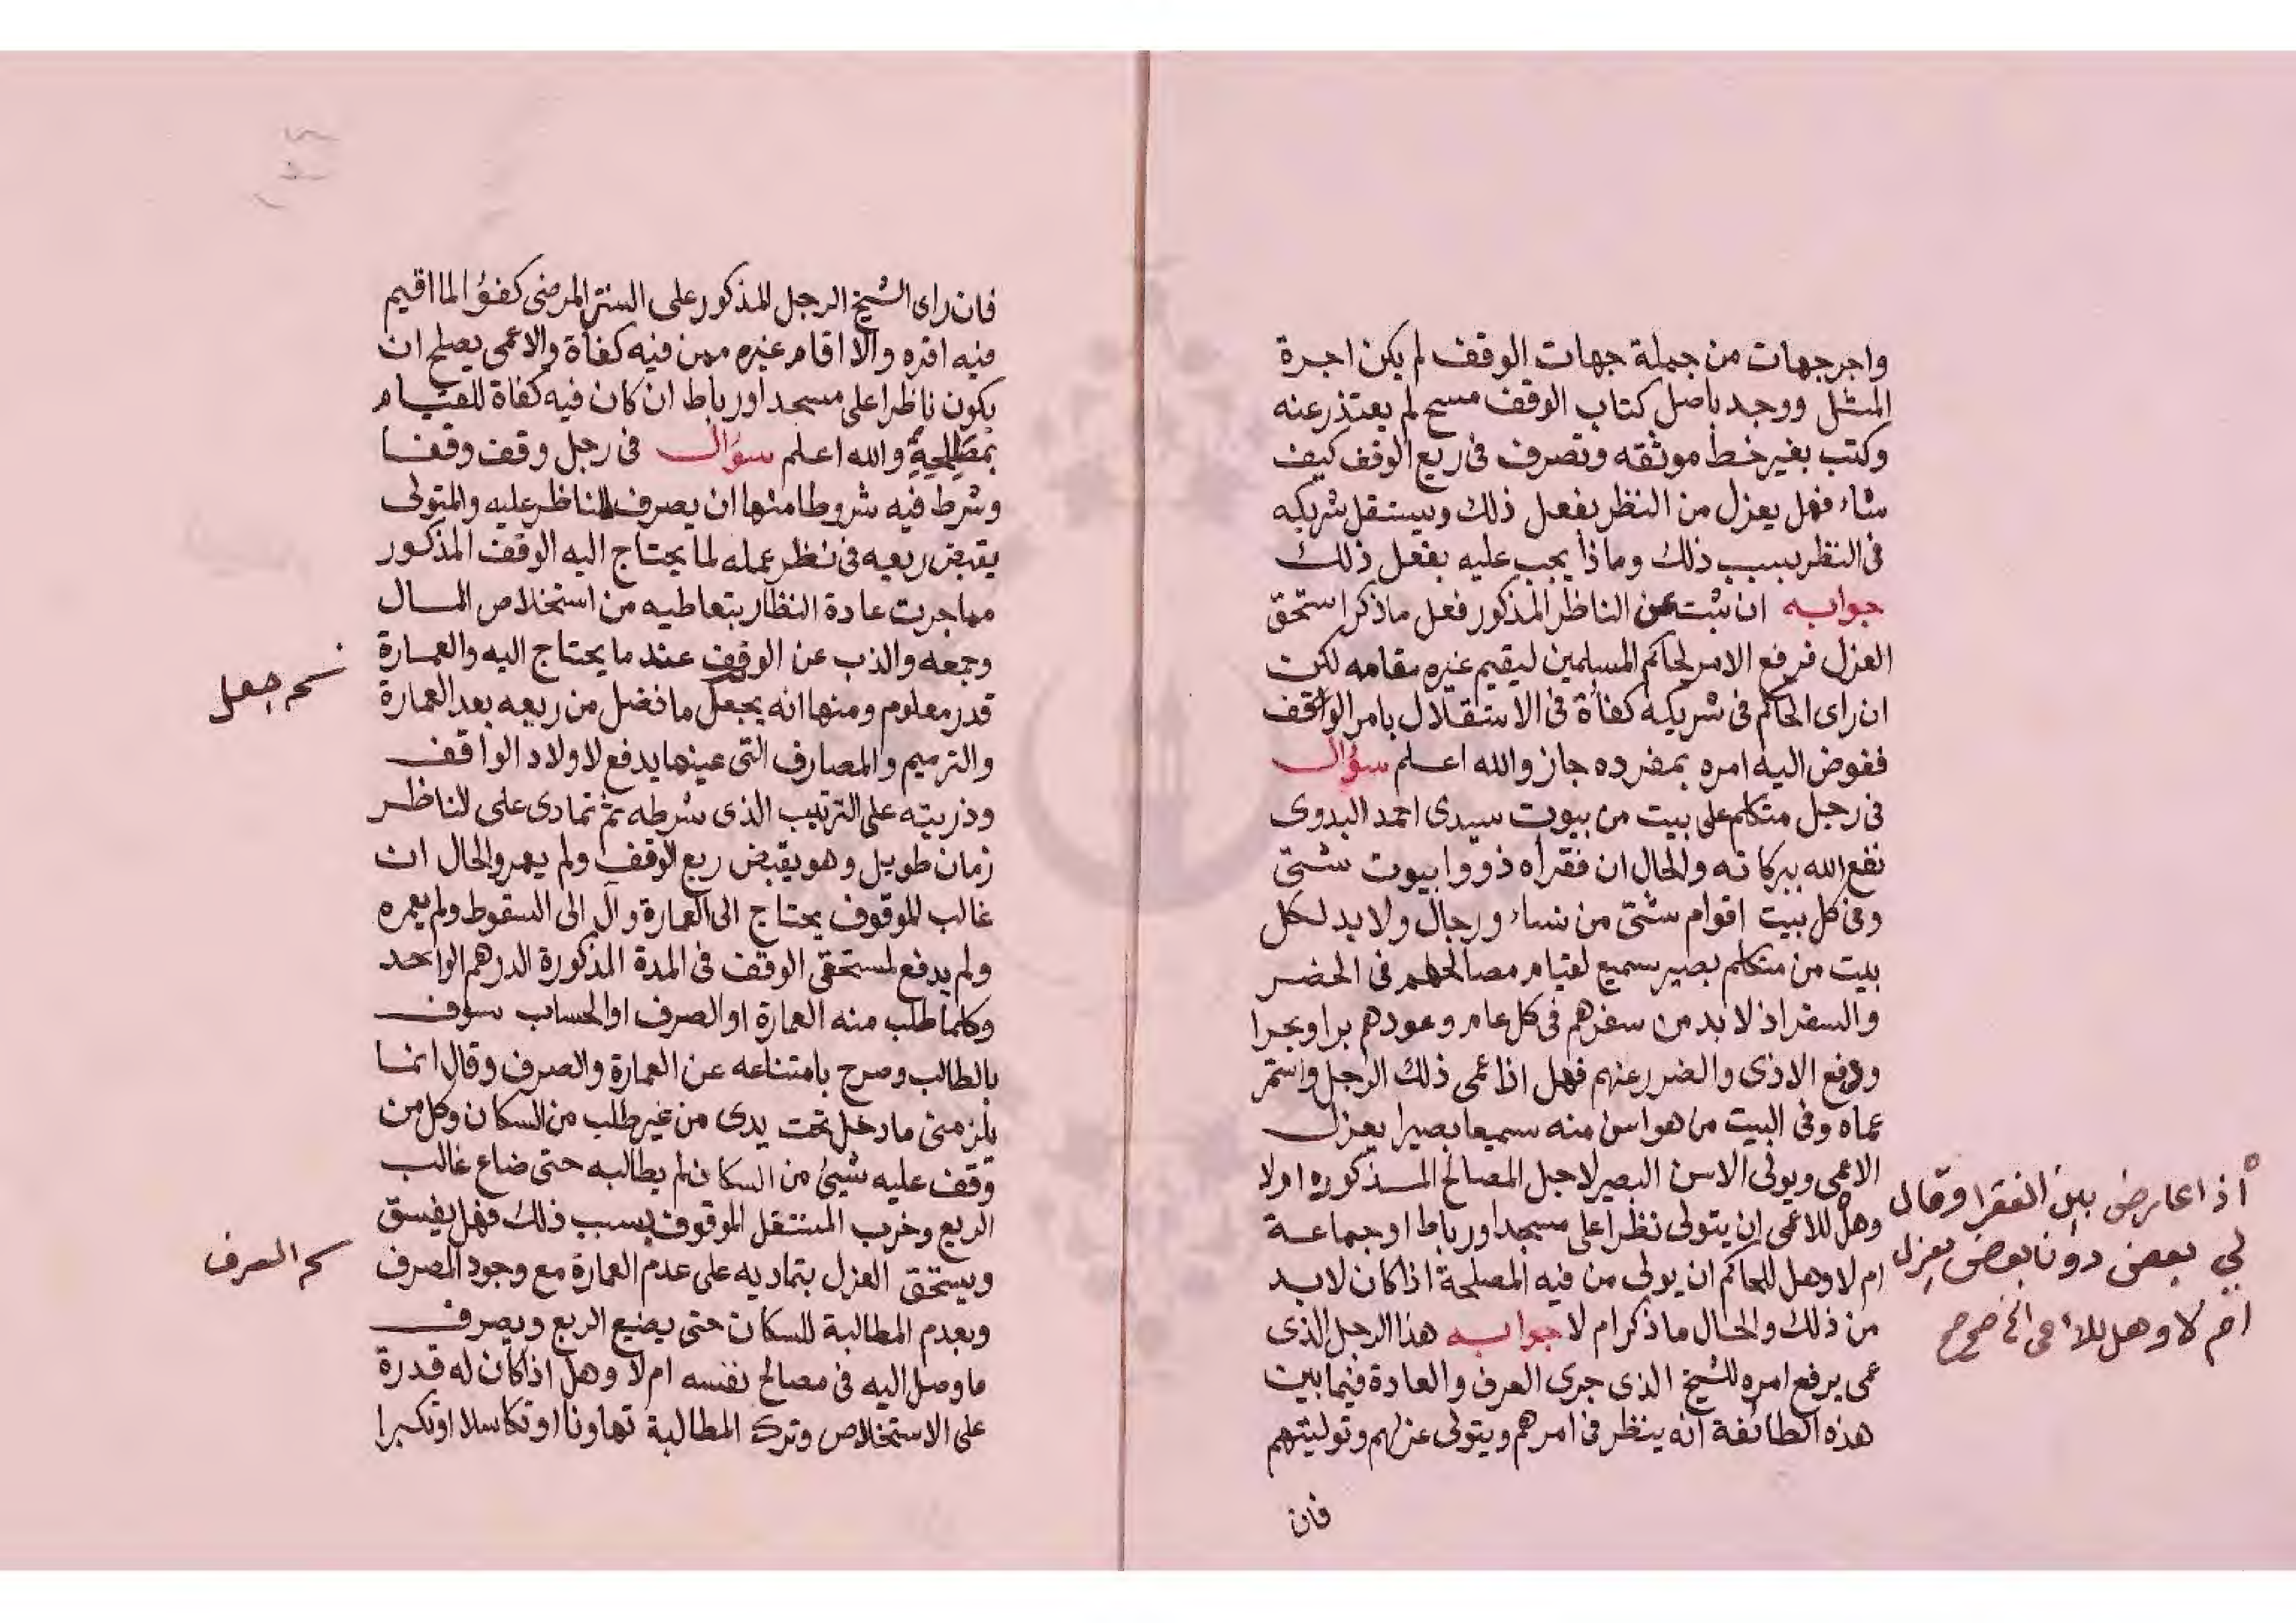 واجر جهات من جملة جهات الوقف لم يكن اجرة
المثل ووجد باصل كتاب الوقف مسح لم يعتذر عنه
وكتب بغير خط موثقه وتصرف فى ريع الوقف كيف
شاء فهل يعزل من النظر بفعل ذلك ويستقل شريكه
فى النظر بسبب ذلك وماذا يجب عليه بفعل ذلك
جوابه ان ثبت عن الناظر المذكور فعل ما ذكر استحق
العزل فيرفع الامر لحاكم المسلمين ليقيم غيره مقامه لكن
ان راى الحاكم فى شريكه كفأة فى الاستقلال بامر الواقف
ففوض اليه امره بمفرده جاز والله اعلم سؤال
فى رجل متكلم على بيت من بيوت سيدى احمد البدوى
نفع الله ببركاته والحال ان فقراه ذووا بيوت شتى
وفى كل بيت اقوام شتى من نساء ورجال ولا بد لكل
بيت من متكلم بصير سميع لقيام مصالحهم فى الحضر
والسفر اذ لا بد من سفرهم فى كل عام وعودهم برا وبحرا
ودفع الاذى والضرر عنهم فهل اذا عمى ذلك الرجل واستمر
عماه وفى البيت من هو اسن منه سميعا بصيرا يعزل
الاعمى ويولى الاسن البصير لاجل المصالح المذكوره اولا
وهل للاعمى ان يتولى نظرا على مسجد او رباط او جماعة
ام لا وهل للحاكم ان يولى من فيه المصلحة اذا كان لا بد
من ذلك والحال ما ذكر ام لا جوابه هذا الرجل الذى
عمى يرفع امره للشيخ الذى جرى العرف والعادة فيما بين
هذه الطائفة انه ينظر فى امرهم ويتولى عزلهم وتوليتهم
فان
اذا عارض بين الفقرا وقال
لي بعض دون بعض يعزل
ام لا وهل للأعمى الخ صح صح
فان راى الشيخ الرجل المذكور على السنن المرضى كفؤا لما اقيم
فيه اقره والا اقام غيره ممن فيه كفأة والاعمى يصلح ان
يكون ناظرا على مسجد او رباط ان كان فيه كفاة للقيام
بمصلحة والله اعلم سؤال فى رجل وقف وقفا
وشرط فيه شروطا منها ان يصرف للناظر عليه والمتولى
يقبض ريعه فى نظر عمله لما يحتاج اليه الوقف المذكور
مما جرت عادة النظار بتعاطيه من استخلاص المال
وجمعه والذب عن الوقف عند ما يحتاج اليه والعمارة
قدر معلوم ومنها انه يجعل ما فضل من ريعه بعد العمارة
والترميم والمصارف التى عينها يدفع لاولاد الواقف
وذريته على الترتيب الذى شرطه ثم تمادى على الناظر
زمان طويل وهو يقبض ريع الوقف ولم يعمر والحال ان
غالب الموقوف يحتاج الى العمارة وآل الى السقوط ولم يعمره
ولم يدفع لمستحقى الوقف فى المدة المذكورة الدرهم الواحد
وكلما طلب منه العمارة او الصرف او الحساب سوف
بالطالب وصرح بامتناعه عن العمارة والصرف وقال انما
يلزمنى ما دخل تحت يدى من غير طلب من السكان وكل من
وقف عليه شيئ من السكان لم يطالبه حتى ضاع غالب
الريع وخرب المستقل الموقوف بسبب ذلك فهل يفسق
ويستحق العزل بتماديه على عدم العمارة مع وجود المصرف
وبعدم المطالبة للسكان حتى يضيع الريع ويصرف
ما وصل اليه فى مصالح نفسه ام لا وهل اذا كان له قدرة
على الاستخلاص وترك المطالبة تهاونا او تكاسلا او تكبرا
جعل
الصرف